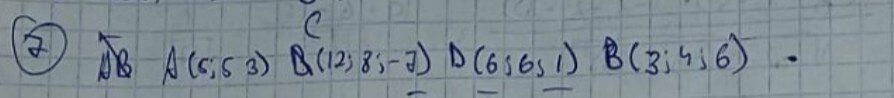 C
⑦ AB A(5;5 3) B(12;8;-7) D(6;6;1) B(3;4;6) .